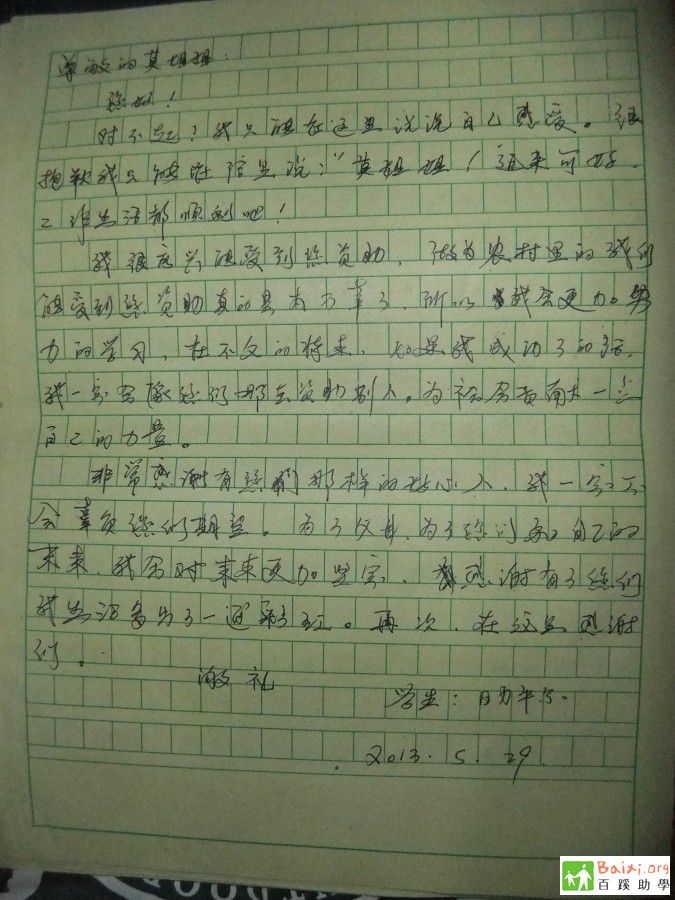 尊敬的莫姐姐:
您好!
对不起!我只能在这里说说自己感受。很
抱歉我只能在信里说:“莫姐姐!近来可好,
工作生活都顺利吧!
我很高兴能受到您资助,做为农村里的我们
能受到您资助真的是太幸了,所以我会更加努
力的学习,在不久的将来,如果我成功了的话,
我一定会像您们那去资助别人。为社会贡献一点
自己的力量。
非常感谢有您们那样的好心人,我一定不
会辜负您们期望。为了父母,为了您们和自己的
未来,我会对未来更加坚实,感谢有了您们
我生活多出了一道彩虹。再次,在这里感谢
们。
敬礼
学生:
2013.5.29
Baixi.org
百蹊助學